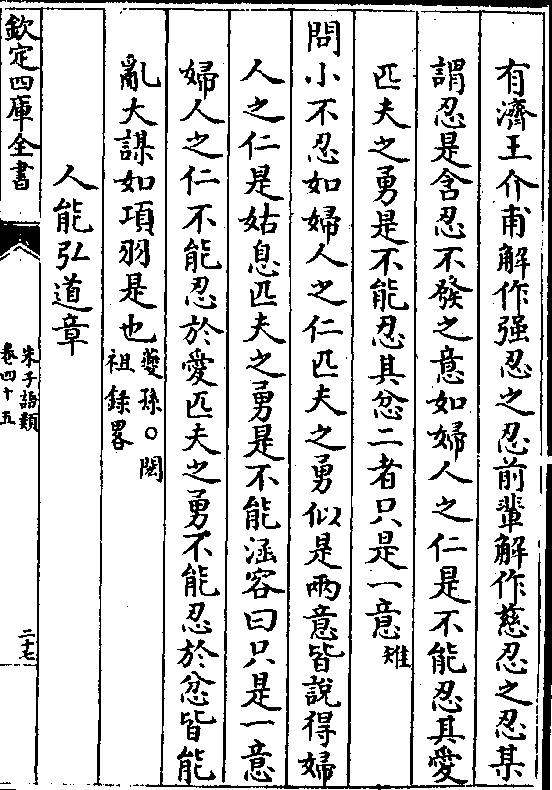 有濟王介甫解作强忍之忍前輩解作慈忍之忍某
謂忍是含忍不發之意如婦人之仁是不能忍其愛
匹夫之勇是不能忍其忿二者只是一意雉
問小不忍如婦人之仁匹夫之勇似是兩意皆說得婦
人之仁是姑息匹夫之勇是不能涵容曰只是一意
婦人之仁不能忍於愛匹夫之勇不能忍於忿皆能
亂大謀如項羽是也䕫孫○閎
祖錄畧
人能弘道章
欽定四庫全書
朱子語類
卷四十五
二十七